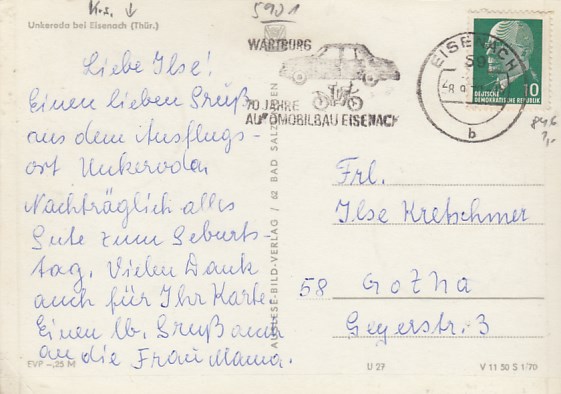 K.s. ↓
5901
Unkeroda bei Eisenach (Thür.)
WARTBURG
70 JAHRE
AUTOMOBILBAU EISENACH
EISENACH
b
10
DEUTSCHE
DEMOKRATISCHE REPUBLIK
Liebe Ilse!
Einen lieben Gruß
aus dem Ausflugs-
ort Unkeroda.
Nachträglich alles
Gute zum Geburts-
tag. Vielen Dank
auch für Ihr Karte.
Einen lb. Gruß auch
an die Frau Mama.
AUSLESE-BILD-VERLAG / 62 BAD SALZUNGEN
Frl.
Ilse Kretschmer
58 Gotha
Geyerstr. 3
EVP –,25 M
U 27
V 11 50 S 1/70